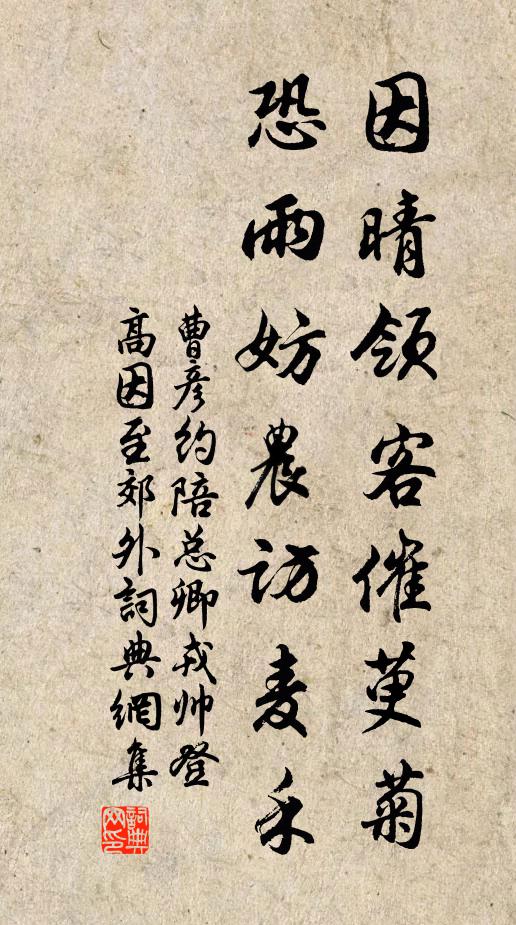 因晴领客催萸菊
恐雨妨農访麦禾
曹彦约陪总卿戎帅登
高因至郊外詞典網集
詞典網印